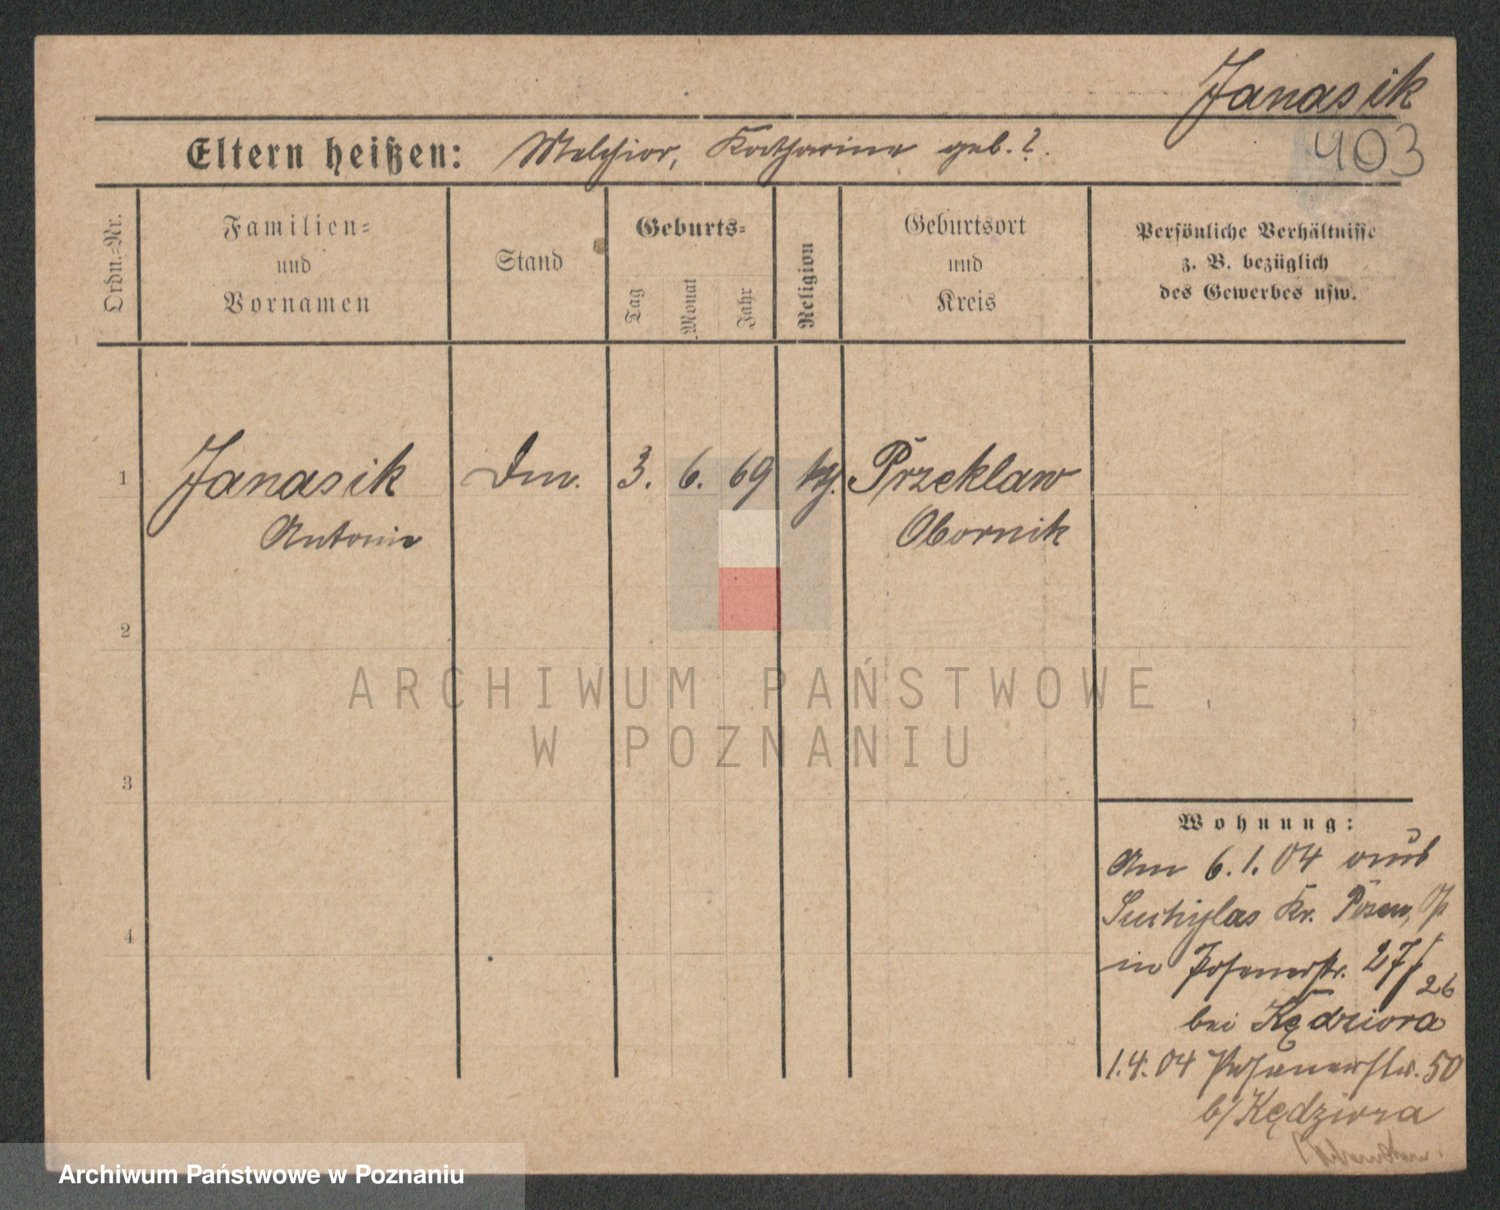 Janasik
403
Eltern heißen: Melchior, Katharina geb. ?.
Ordn.-Nr.
Familien-
und
Vornamen
Stand
Geburts-
Tag
Monat
Jahr
Religion
Geburtsort
und
Kreis
Persönliche Verhältnisse
z. B. bezüglich
des Gewerbes usw.
1 Janasik 3. 6. 69 Przeklaw
Antonie Obornik
2
3
4
Wohnung:
Am 6.1.04 aus
Suchylas Kr. Posen
in Posenerstr. 27/26
bei Kędziora
1.4.04 Posenerstr. 50
b/Kędziora
ARCHIWUM PAŃSTWOWE
W POZNANIU
Archiwum Państwowe w Poznaniu